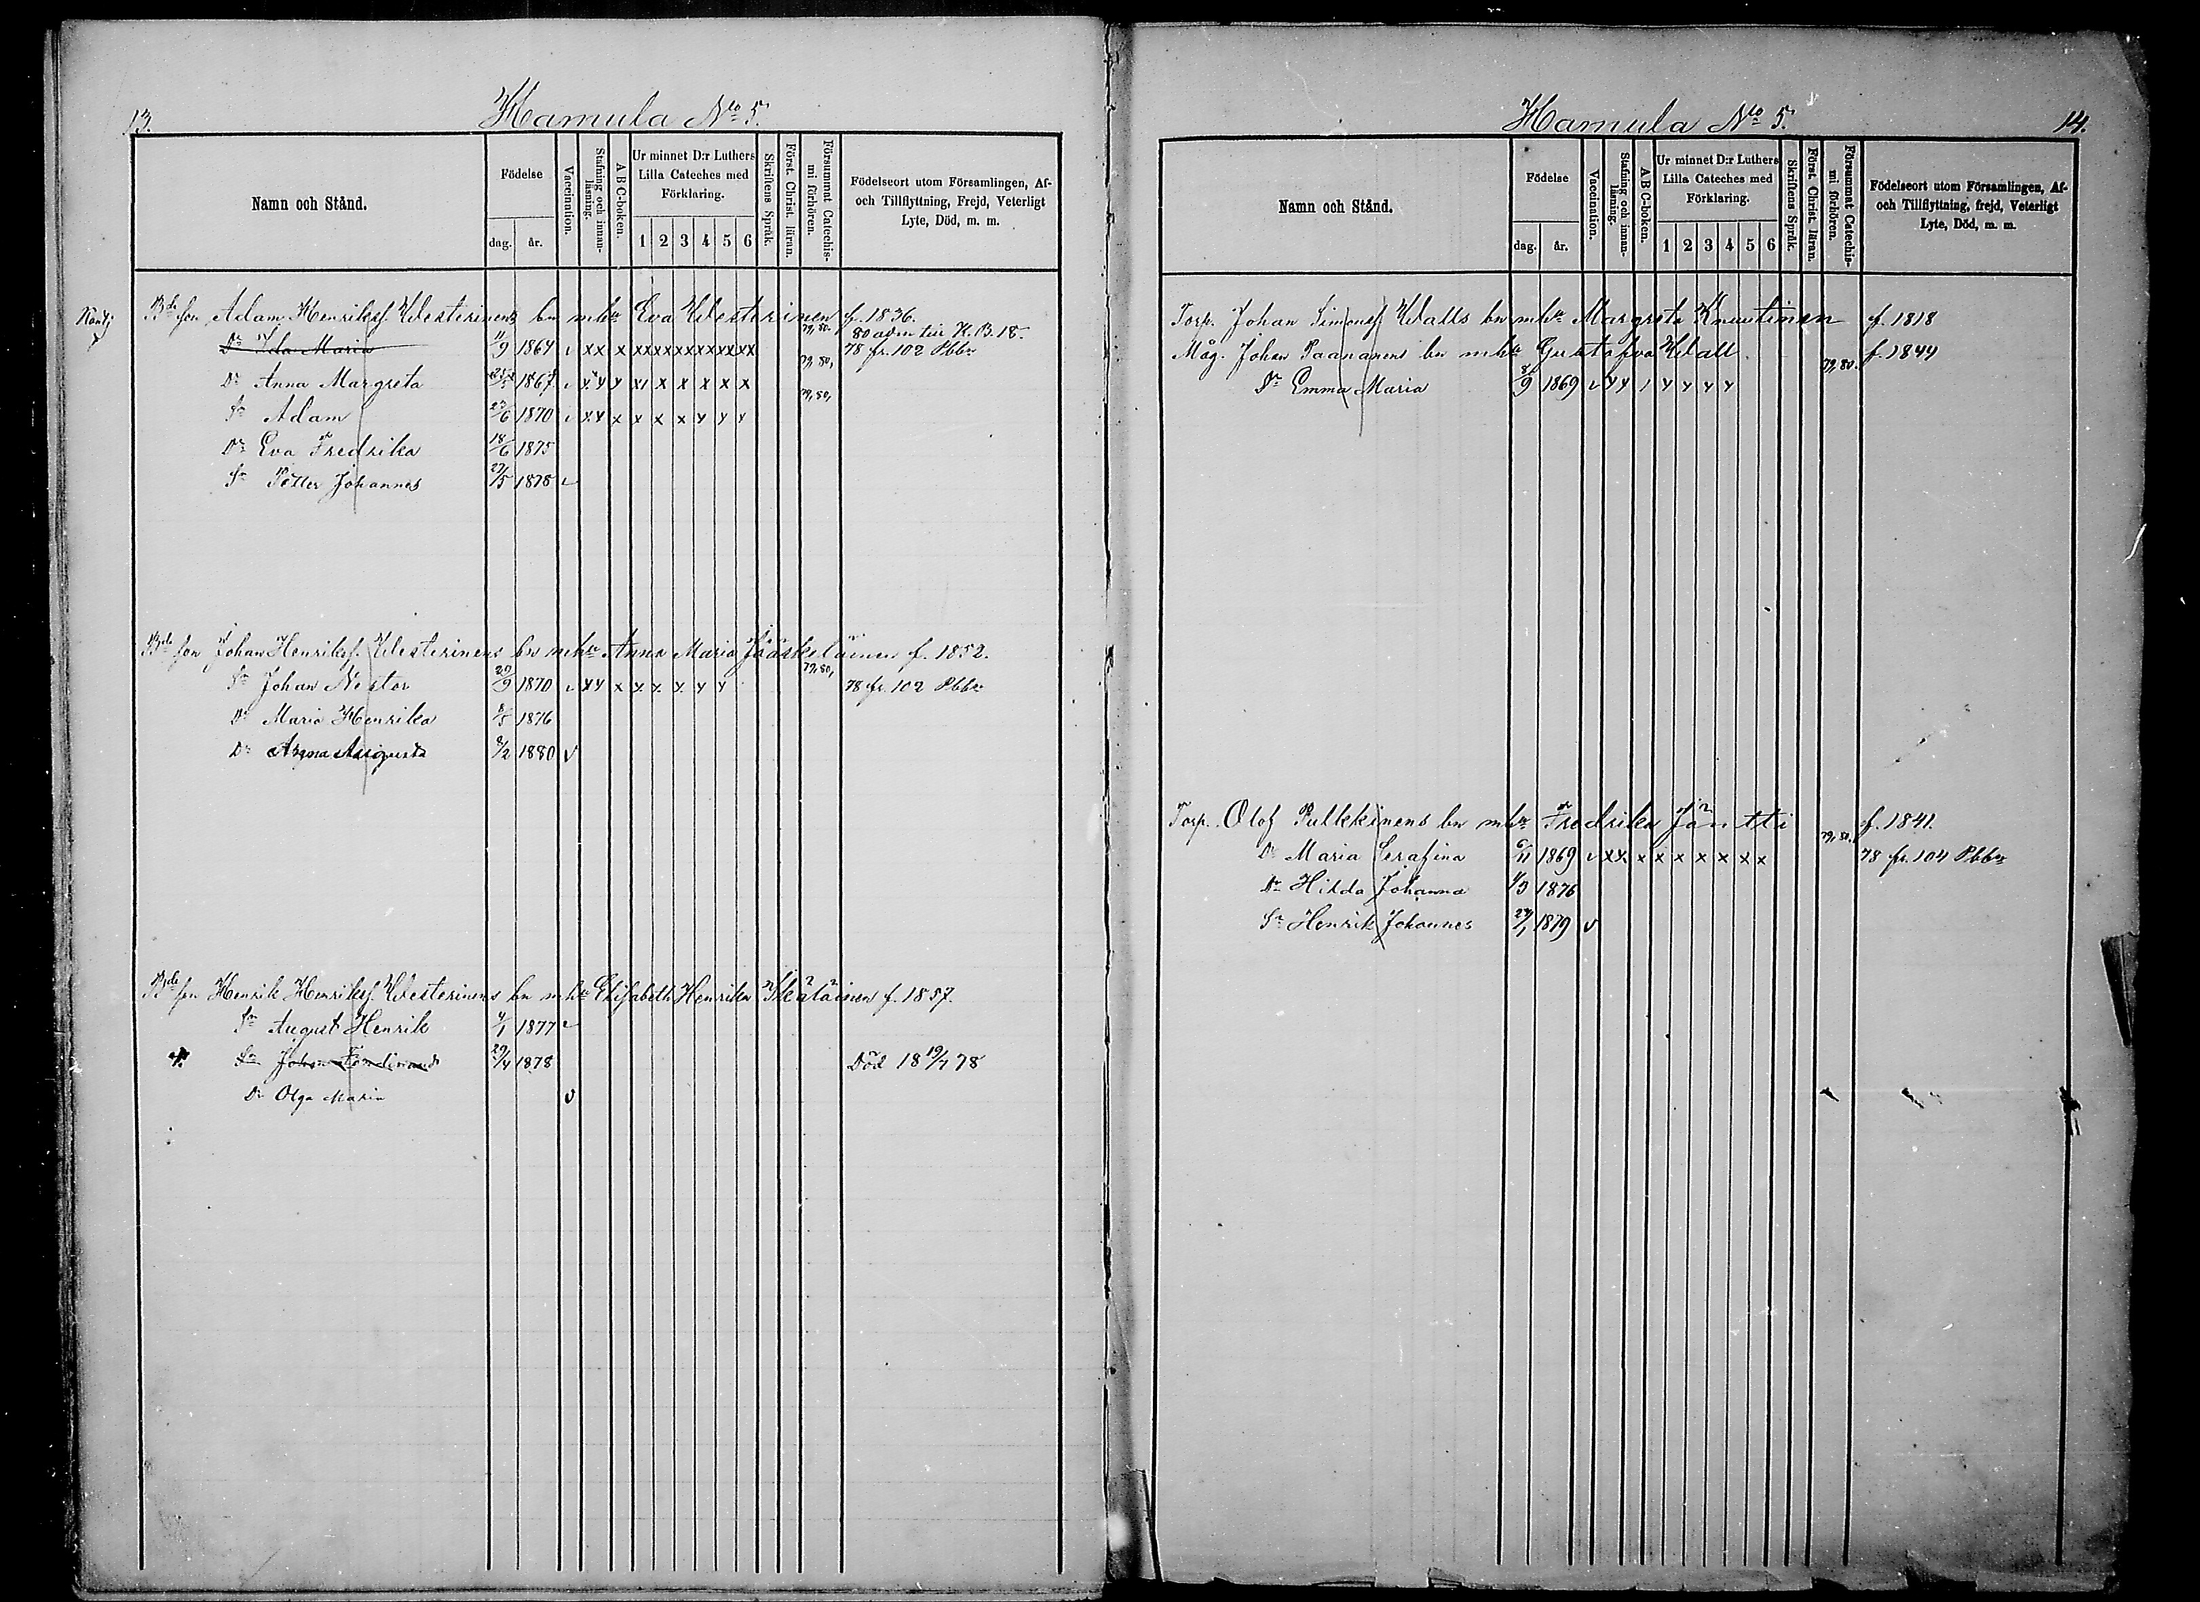 13.
Hamula No 5.
Namn och Stånd.
Födelse
dag.
år.
Vaccination.
Stafning och innan-
läsning.
A B C-boken.
Ur minnet D:r Luthers
Lilla Cateches med
Förklaring.
1 2 3 4 5 6
Skriftens Språk.
Först. Christ. läran.
Försummat Catechis-
mi förhören.
Födelseort utom Församlingen, Af-
och Tillflyttning, Frejd, Veterligt
Lyte, Död, m. m.
Bde son Adam Henrikss. Westerinens bn m hu Eva Westerinen f. 1836.
Dr Ida Maria 11/9 1864 v xx x xx xx xx xx xx xx 79, 80. 80 adm till K. B. 18.
78 fr. 102 Pbbn
Dr Anna Margreta 1867 v x x x x x x x x 79, 80,
Sn Adam 27/6 1870 v x x x x x x x x x 79, 80,
Dr Eva Fredrika 18/6 1875
Sn Petter Johannes 27/5 1878 v
Bde son Johan Henrikss. Westerinens bn m hu Anna Maria Jääskeläinen f. 1852.
Sn Johan Nestor 29/9 1870 v x x x x x x x x 79, 80, 78 fr. 102 Pbbn
Dr Maria Henrika 8/5 1876
Dr Anna Augusta 8/2 1880 v
Bde son Henrik Henrikss. Westerinens bn m hu Elisabeth Henrika Skäläinen f. 1857.
Sn August Henrik 4/1 1877 v
Sn Johan Ferdinand 29/4 1878 Död 18 19/7 78
Dr Olga Maria v
Hamula No 5.
14.
Namn och Stånd.
Födelse
dag.
år.
Vaccination.
Stafning och innan-
läsning.
A B C-boken.
Ur minnet D:r Luthers
Lilla Cateches med
Förklaring.
1 2 3 4 5 6
Skriftens Språk.
Först. Christ. läran.
Försummat Catechis-
mi förhören.
Födelseort utom Församlingen, Af-
och Tillflyttning, frejd, Veterligt
Lyte, Död, m. m.
Torp. Johan Simonss Walls bn m hu Margreta Knuutinen f. 1818
Måg. Johan Paananens bn m hu Gustafva Wall f. 1844
Dr Emma Maria 8/9 1869 v x x / x x x x 79, 80.
Torp. Olof Pulkkinens bn m hu Fredrika Jäntti f. 1841.
Dr Maria Serafina 6/11 1869 v x x x x x x x x x 79, 80. 78 fr. 104 Pbbn
Dr Hilda Johanna 1/3 1876
Sn Henrik Johannes 24/1 1879 v